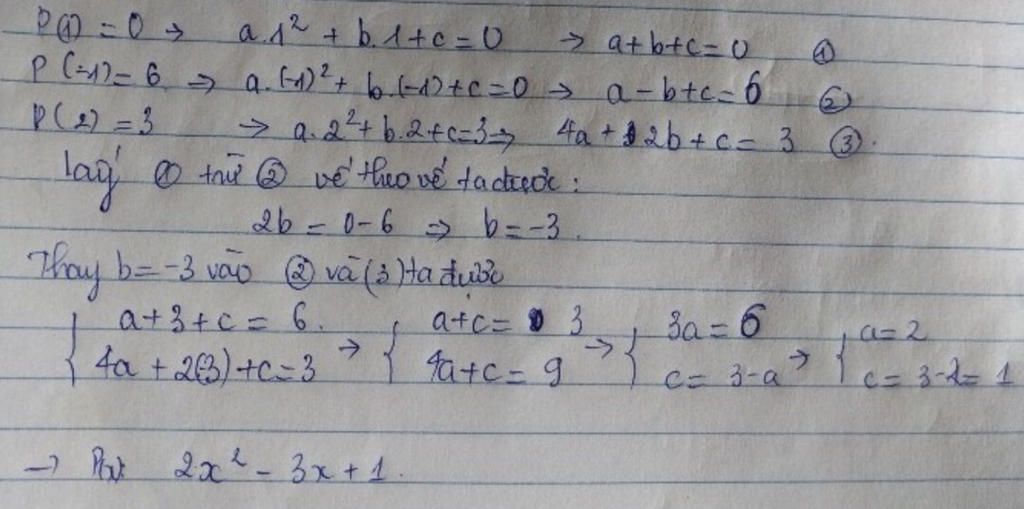 P(1) = 0 → a.1² + b.1 + c = 0 → a+b+c = 0 ①
P(-1) = 6 → a.(-1)² + b.(-1) + c = 0 → a - b + c = 6 ②
P(2) = 3 → a.2² + b.2 + c = 3 → 4a + 2b + c = 3 ③.
lấy ① trừ ② vế theo vế ta được:
2b = 0 - 6 ⇒ b = -3.
Thay b = -3 vào ② và (3) ta được
{ a + 3 + c = 6. → { a + c = 3 → { 3a = 6 → { a = 2
4a + 2(-3) + c = 3 4a + c = 9 c = 3 - a c = 3 - 2 = 1
→ 2x² - 3x + 1.